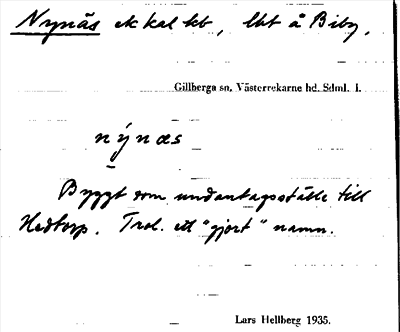 Nynäs ek kal kt, lht å Biby.
Gillberga sn. Västerrekarne hd. Sdml. l.
nýnæs
Byggt som undantagsställe till
Hedtorp. Trol. ett "gjort" namn.
Lars Hellberg 1935.